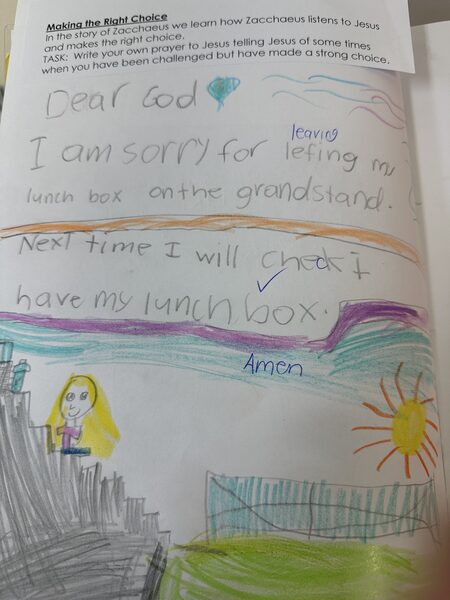 Making the Right Choice
In the story of Zacchaeus we learn how Zacchaeus listens to Jesus
and makes the right choice.
TASK: Write your own prayer to Jesus telling Jesus of some times
when you have been challenged but have made a strong choice.
Dear God
leaving
I am sorry for lefing my
lunch box on the grandstand.
Next time I will check I
have my lunch box.
Amen